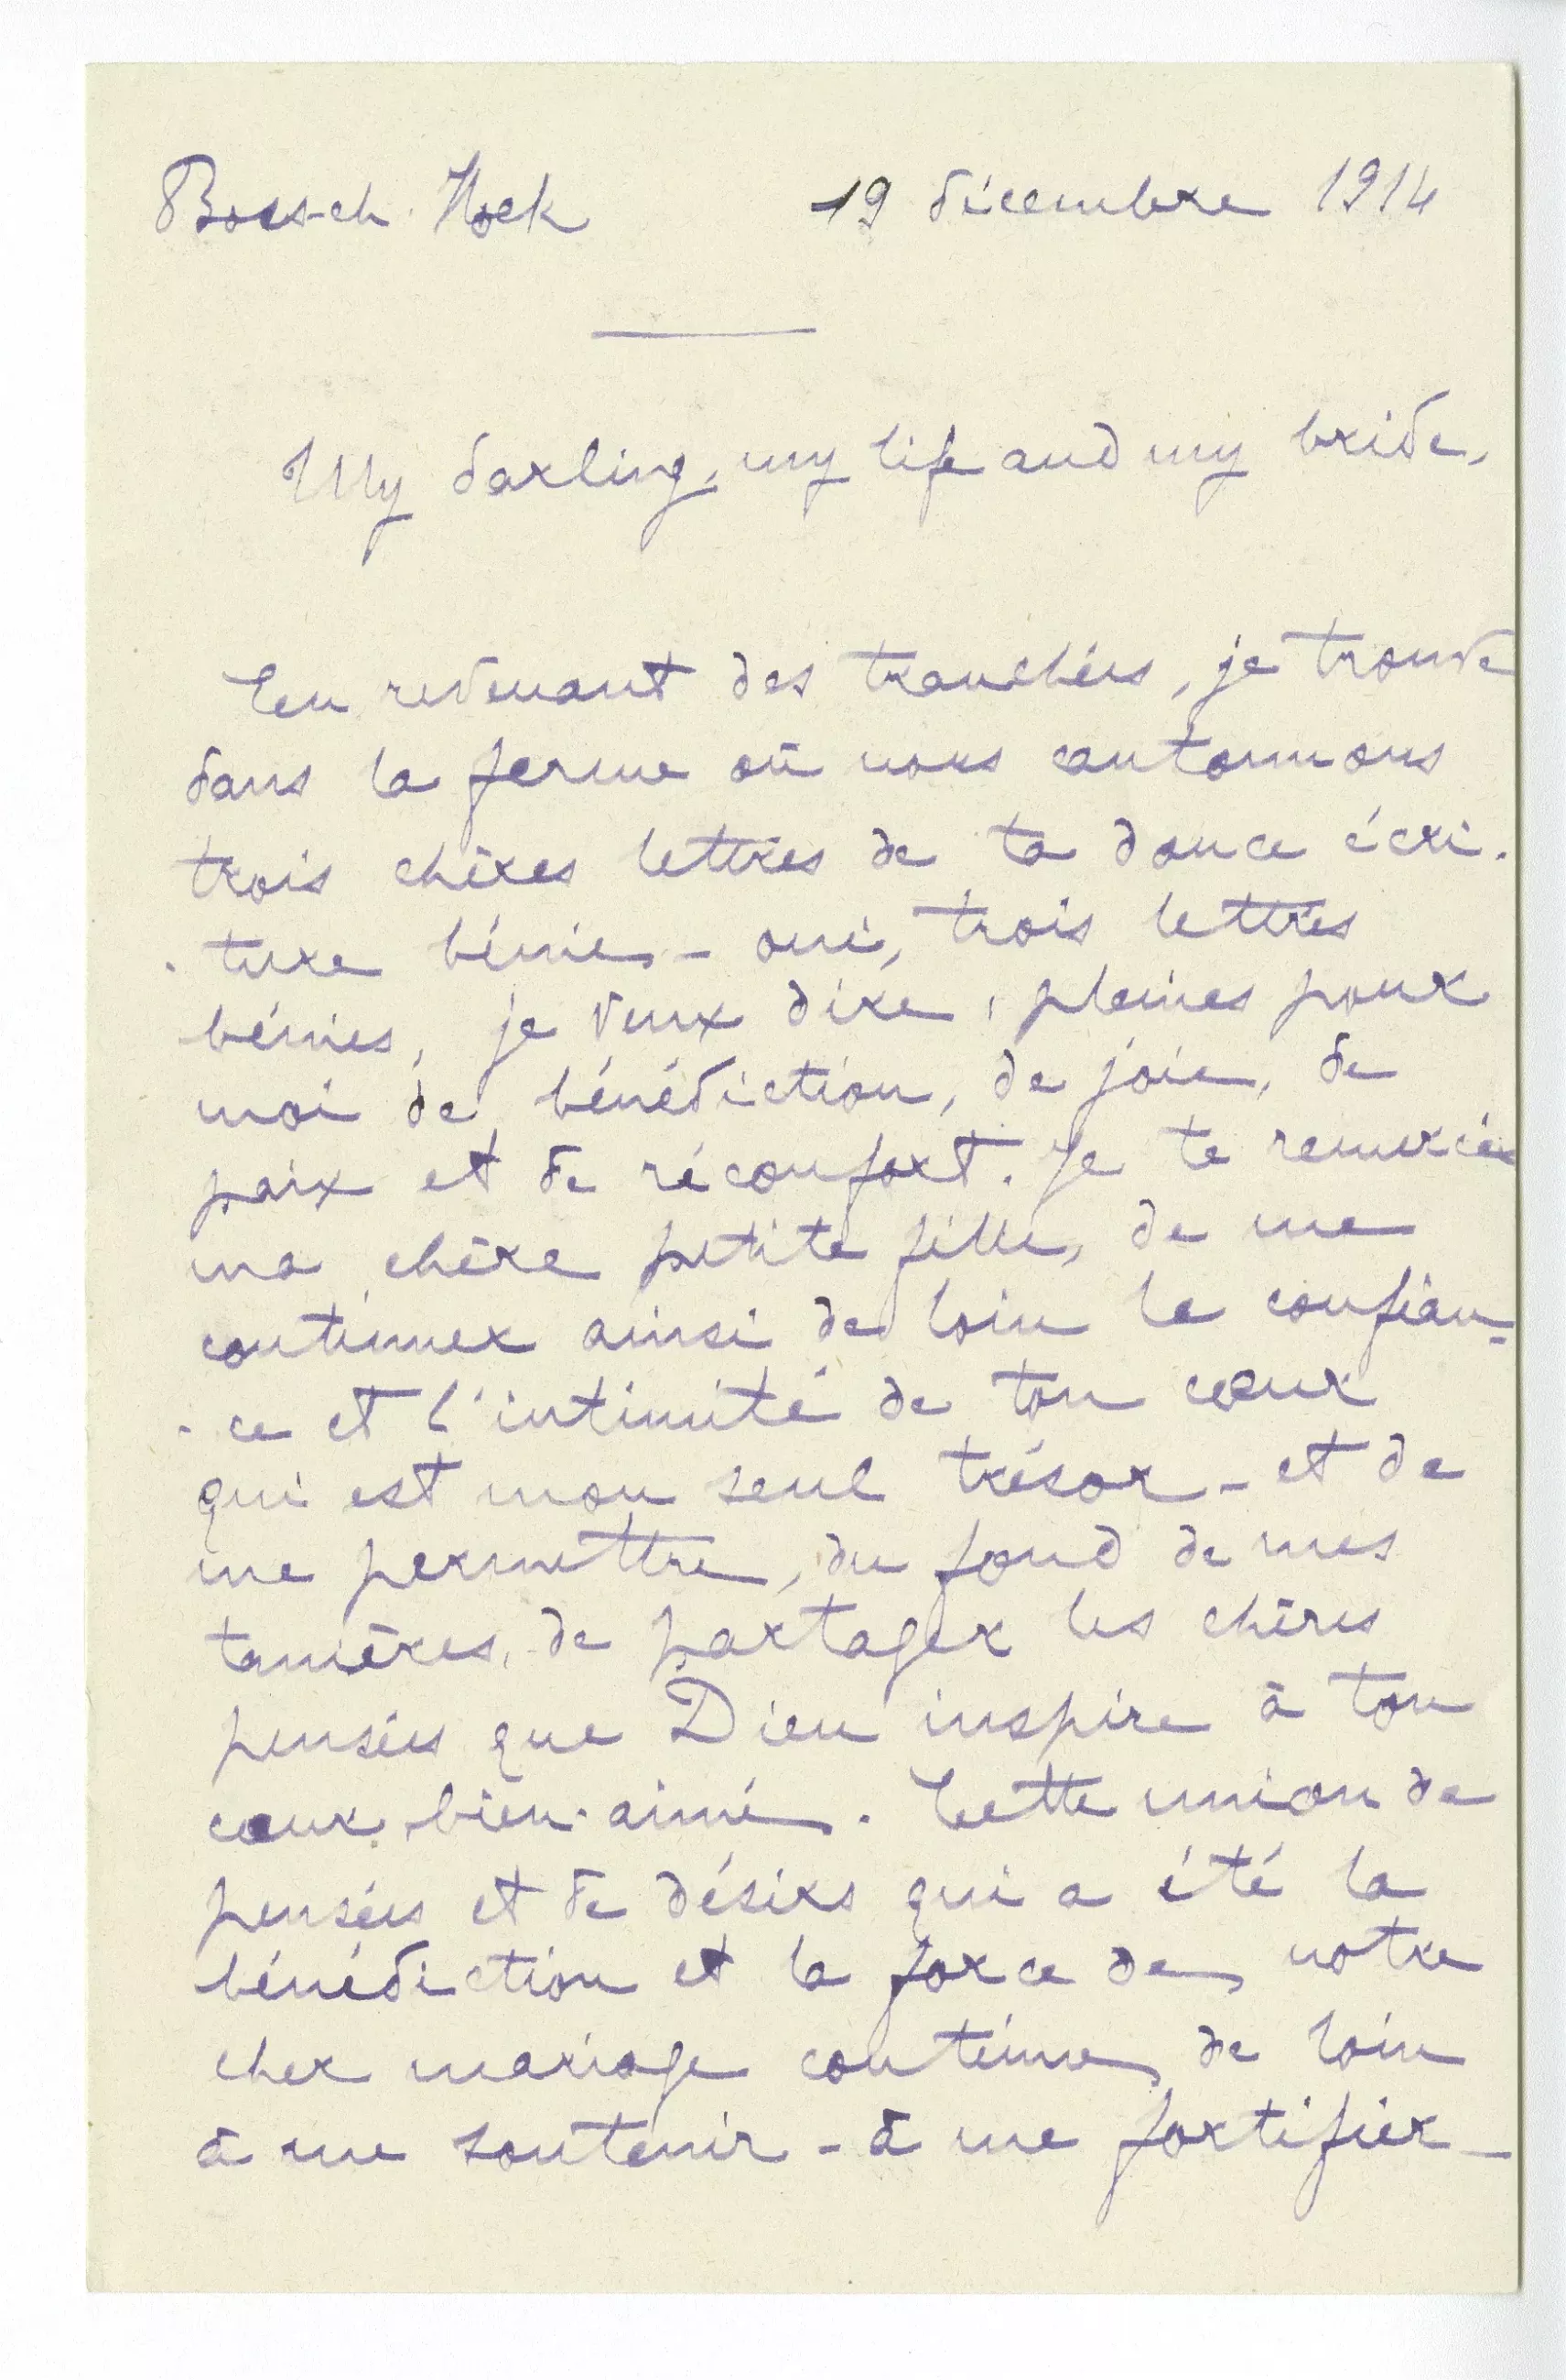 Boesch. Hoek 19 décembre 1914
My darling, my life and my bride,
En revenant des tranchées, je trouve
dans la ferme où nous cantonnons
trois chères lettres de ta douce écri-
-ture bénie - oui, trois lettres
bénies, je veux dire, pleines pour
moi de bénédiction, de joie, de
paix et de réconfort. Je te remercie
ma chère petite fille, de me
continuer ainsi de loin la confian-
-ce et l'intimité de ton cœur
qui est mon seul trésor - et de
me permettre, du fond de mes
tanières, de partager les chères
pensées que Dieu inspire à ton
cœur bien-aimé. Cette union de
pensées et de désirs qui a été la
bénédiction et la force de notre
cher mariage continue de loin
à me soutenir - à me fortifier -